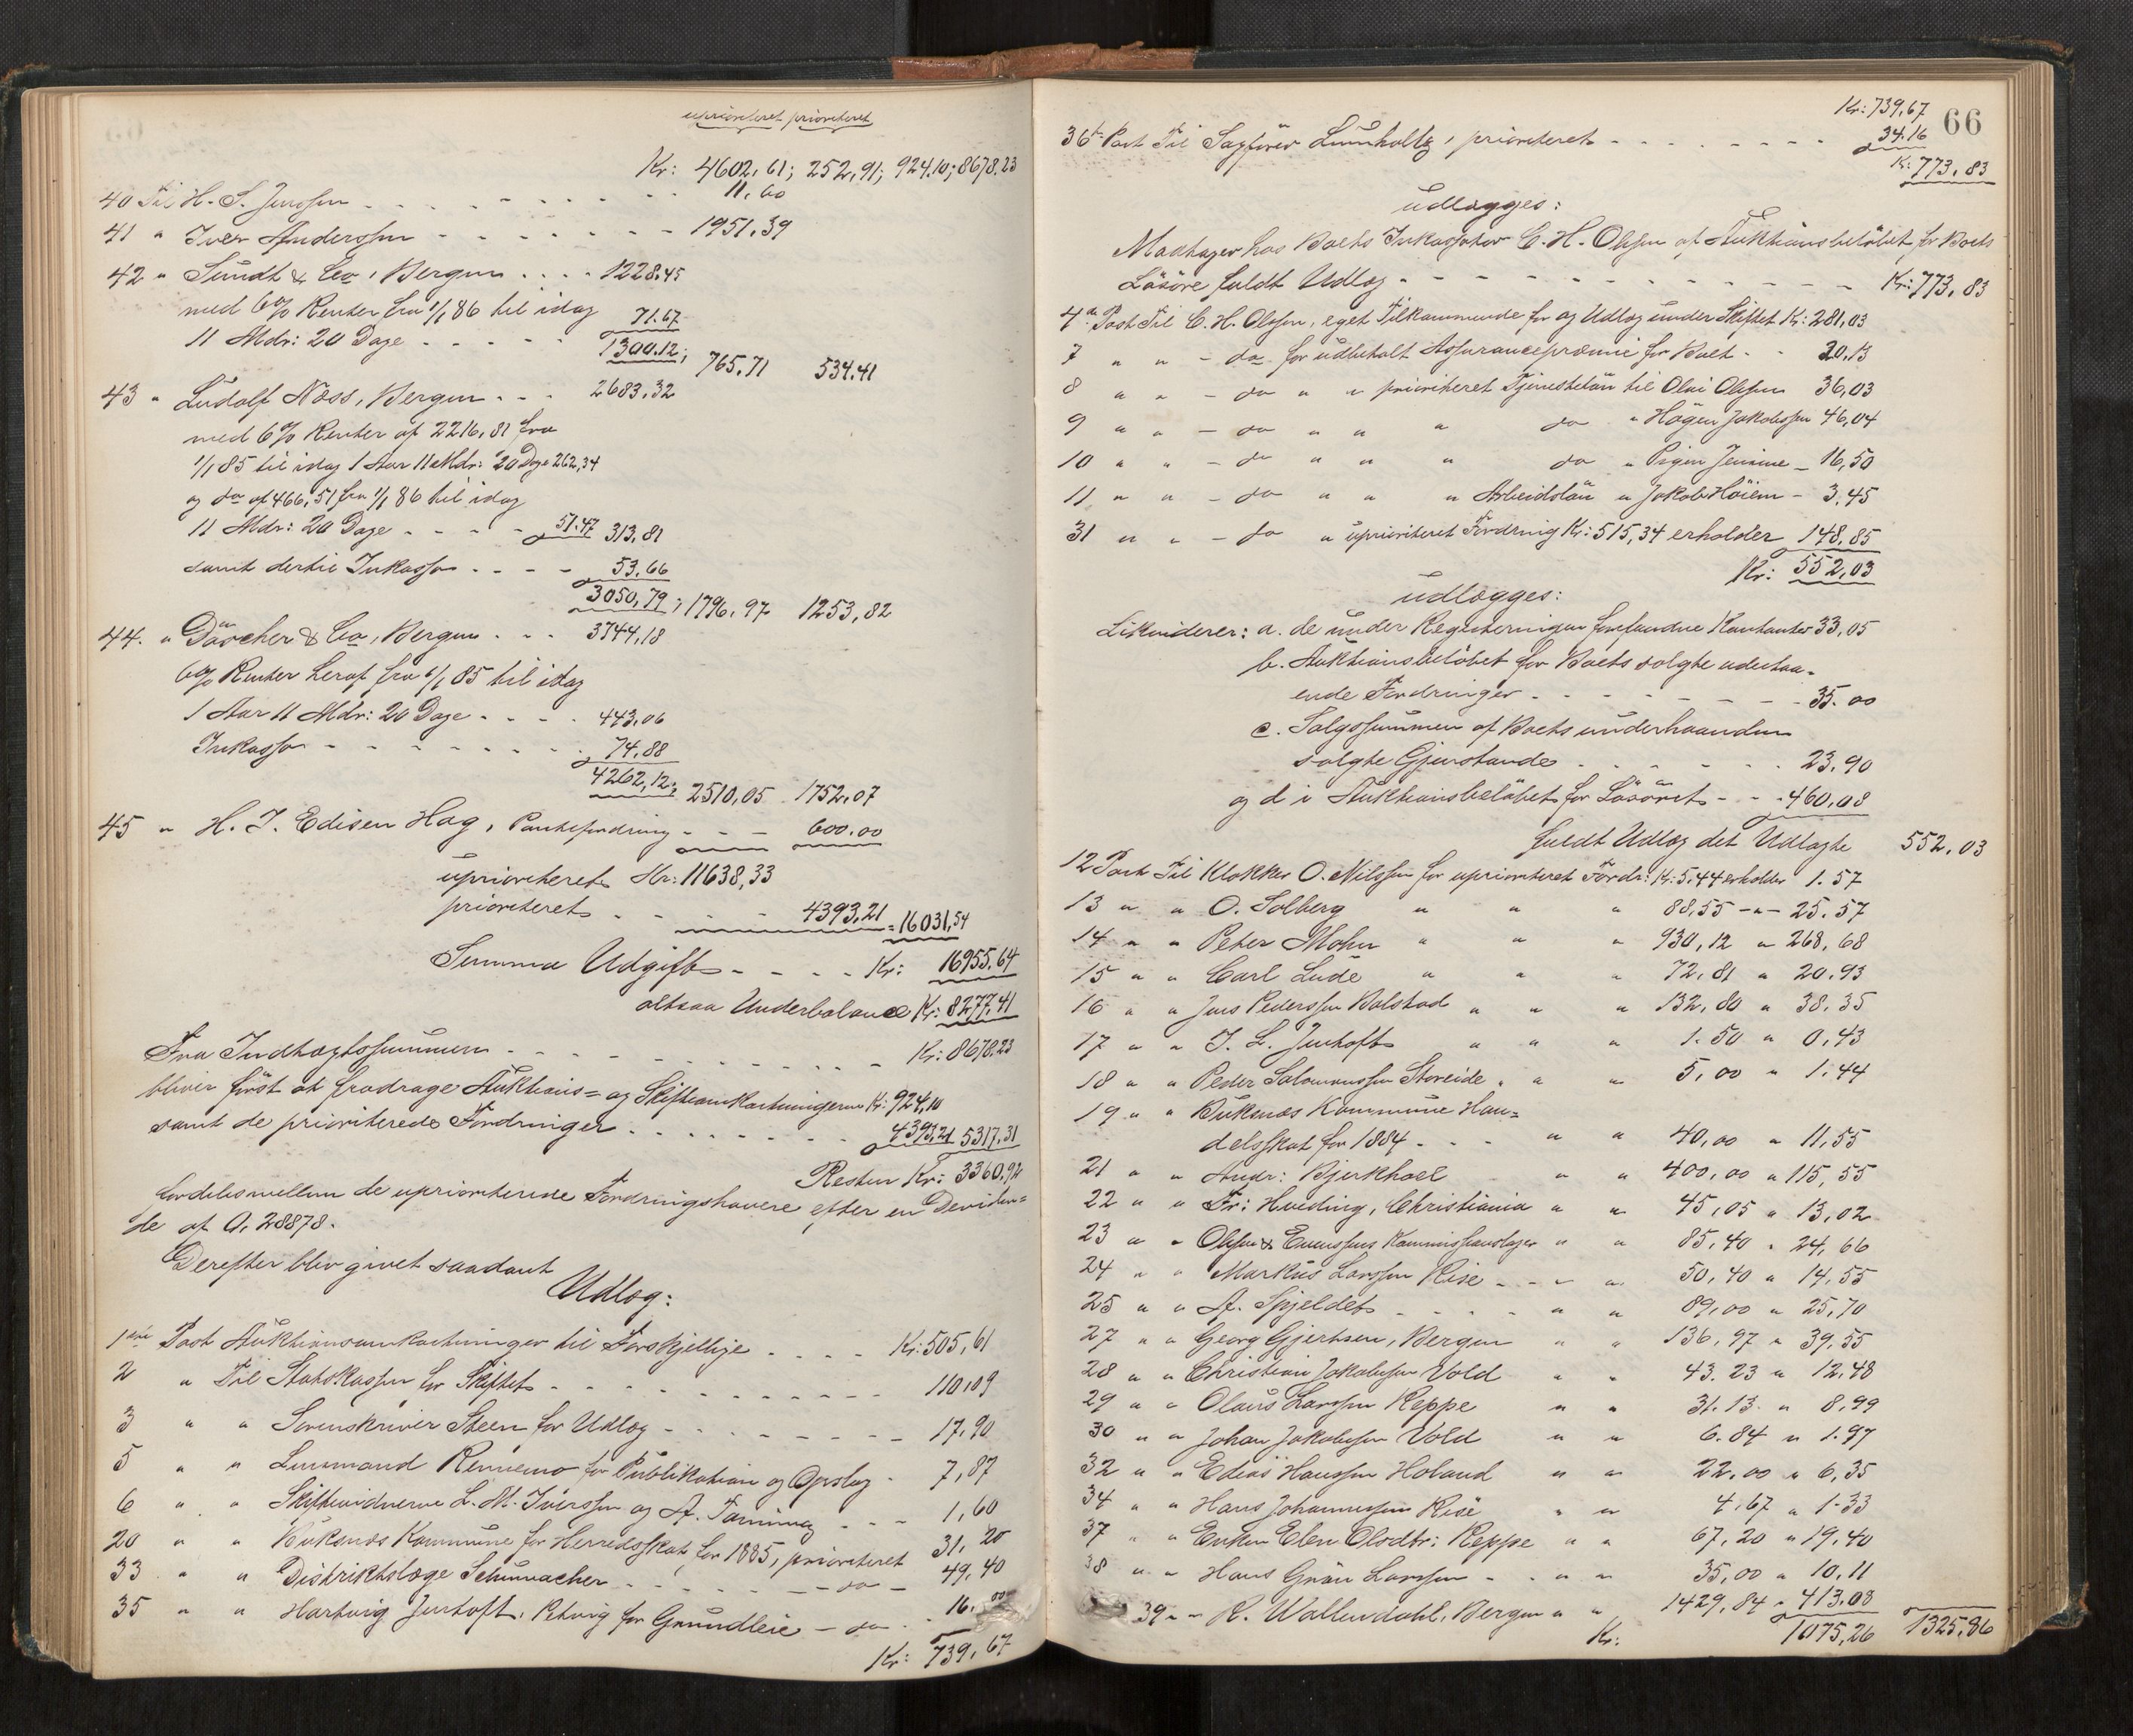 uprioriteret prioriteret
Kr: 4602,61; 252,91; 924.10; 8678.23
40 Til H. S. Jenssen - - - 11.60
41 " Iver Anderssen - - - 1951.39
42 " Sundt & Co, Bergen . . . 1228.45
med 6% Renter fra 1/1 86 til idag
11 Mdr: 20 Dage - - - 71.67
1300.12; 765.71 534.41
43 " Ludolf Næss, Bergen - - - 2683.32
med 6% Renter af 2216,81 fra
1/1 85 til idag 1 Aar 11 Mdr: 20 Dage 262,34
og do af 466,51 fra 1/1 86 til idag
11 Mdr: 20 Dage - - - - 51.47 313,81
samt dertil Inkasso - - - - 53.66
3050,79; 1796.97 1253,82
44. " Däscher & Co, Bergen - - - 3744,18
6% Renter heraf fra 1/1 85 til idag
1 Aar 11 Mdr: 20 Dage - - - 443.06
Inkasso - - - - 74.88
4262,12; 2510,05 1752.07
45 " H. J. Edisen Hag, Pantefordring - - - 600.00
uprioriterets Kr: 11638,33
prioriterets - - - - 4393,21 = 16031,54
Summa Udgifts - - - - Kr: 16955.64
altsaa Underbalance Kr: 8277.41
Fra Indtægtssummen - - - Kr: 8678.23
bliver först at fradrage Auktions= og Skifteomkostningerne Kr: 924,10
samt de prioriterede Fordringer . . . . 4393.21 5317.31
Resten Kr: 3360.92
fordeles mellem de upriorterede Fordringshavere efter en Deviden=
de af 0,28878.
Derefter blev givet saadant
Udlæg:
1ste Post Auktionsomkostninger til Forskjellige . . . . Kr: 505,61
2 " Til Statskassen for Skiftet - - - 110.09
3 " " Sorenskriver Steen for Udlæg - - - 17.90
5 " " Lensmand Rennemo for Publikation og Opslag - 7,87
6 " " Skiftevidnerne L. M. Iverssen og A. - - - 1,60
20 " " Buksnæs Kommune for Herredsskat for 1885, prioriteret 31,20
33 " " Distriktslæge Schumacher - - - do - 49,40
35 " " Hartvig Jentoft, Petvig for Grundleie - do - 16.00
Kr: 739,67
66
Kr: 739,67
36te Post Til Sagfører Lumholtz, prioriterets - - - 34.16
Kr: 773,83
udlægges:
Modtager hos Boets Inkassator C. H. Olssen af Auktionsbelöbet for Boets
Lösöre fuldt Udlæg - - - Kr: 773,83
4de Post Til C. H. Olssen, eget Tilkommende for og Udlæg under Skiftet Kr: 281,03
7 " " - do for udbetalt Assurancepræmie for Boet - - 20.13
8 " " - do " " prioriteret Tjenestelön til Olai Olssen 36,03
9 " " - do " " " do " Hägen Jakobssen 46,04
10 " " - do " " " do " Pigen Jensine - 16,50
11 " " - do " " " Arbeidslön " Jakob Höiem - 3,45
31 " " - do " upriorteret Fordring Kr: 515,34 erholder 148.85
Kr: 552,03
udlægges:
Likviderer: a. de under Registreringen forefundne Kontanter 33,05
b. Auktionsbelöbet for Boets solgte udestaa-
ende Fordringer - - - 35.00
c. Salgssummen af Boets underhaanden
solgte Gjenstande . . . . 23.90
og d i Auktionsbelöbet for Lösöret - - - 460,08
fuldt Udlæg det Udlagte 552.03
12 Post Til Klokker O. Nilssen for upriorteret Fordr: Kr: 5.44 erholder 1.57
13 " " O. Solberg " " " 88,55 - " - 25.57
14 " " Peter Mohn " " " 930,12 " 268,68
15 " " Carl Lude " " " 72.81 " 20.93
16 " " Jens Pederssen Bolstad " " " 132,80 " 38.35
17 " " J. L. Jentofts " " " 1.50 " 0.43
18 " " Peder Salomonssen Storeide " " " 5,00 " 1.44
19 " " Buksnæs Kommune Han=
delsskat for 1884 - - - " " 40,00 " 11,55
21 " " Andr: Bjerkhoel " " 400,00 " 115,55
22 " " Fr: Hveding, Christiania " " 45,05 " 13,02
23 " " Olssen & Evenssens Kommissionslager " " 85,40 " 24,66
24 " " Markus Larssen Rise - - - " 50,40 " 14,55
25 " " A. Spjeldets - - - " " 89,00 " 25,70
27 " " Georg Gjertsen, Bergen " " 136,97 " 39,55
28 " " Christian Jakobssen Vold " " 43.23 " 12,48
29 " " Olaus Larssen Reppe " " 31.13 " 8,99
30 " " Johan Jakobssen Vold " " 6.84 " 1.97
32 " " Edias Hanssen Holand " " 22,00 " 6,35
34 " " Hans Johannessen Rise " " 4.67 " 1.33
37 " " Enken Elen Olsdtr: Reppe " " 67,20 " 19,40
38 " " Hans Grön Larssen - - " " 35,00 " 10.11
39 " " R. Wallendahl, Bergen " " 1429,84 " 413,08
Kr: 1075,26 1325,86